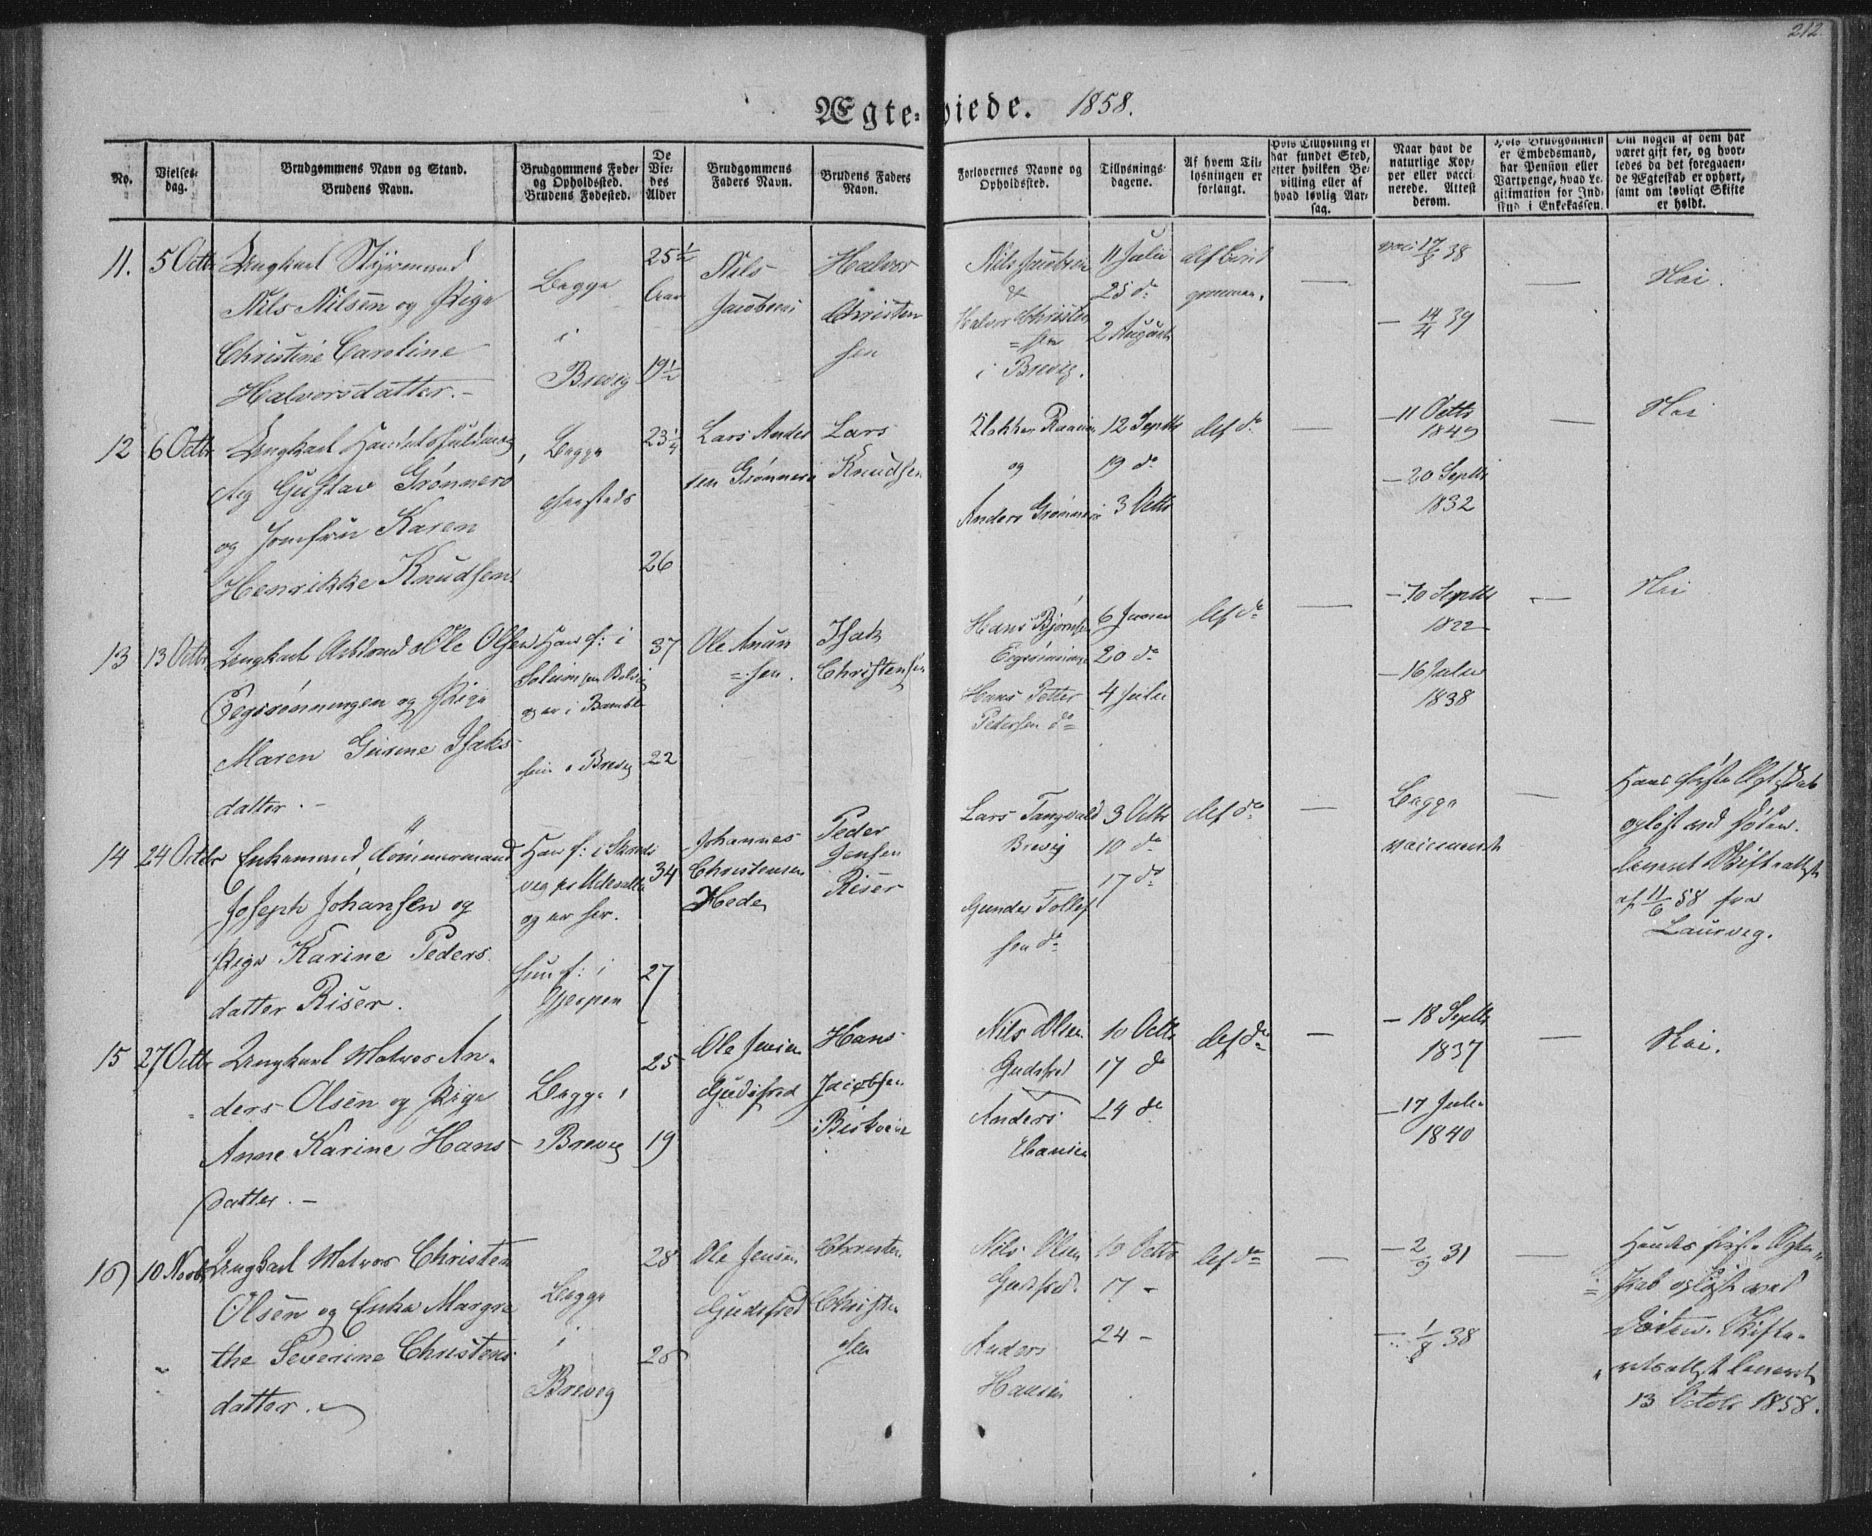 212.
Ægte=viede. 1858.
No.
Vielses-dag.
Brudgommens Navn og Stand.
Brudens Navn.
Brudgommens Føde-
og Opholdssted.
Brudens Fødested.
De
Vie-
des
Alder
Brudgommens
Faders Navn.
Brudens Faders
Navn.
Forlovernes Navne og
Opholdssted.
Tillysnings-
dagene.
Af hvem Til-
lysningen er
forlangt.
Hvis Tillysning ei
har fundet Sted,
efter hvilken Be-
villing eller af
hvad lovlig Aar-
sag.
Naar havt de
naturlige Kop-
per eller vacci-
nerede. Attest
derom.
Hvis Brudgommen
er Embedsmand,
har Pension eller
Vartpenge, hvad Le-
gitimation for Ind-
skud i Enkekassen.
Om nogen af dem har
været gift før, og hvor-
ledes da det foregaaen-
de Ægteskab er ophørt,
samt om lovligt Skifte
er holdt.
11. 5 Octbr Ungkarl Styrmand
Nils Nilsen og Pige
Christine Caroline
Halvorsdatter. -
Begge
i
Brevig
25 1/2
Aar
19 1/2
Nils
Jacobsen
Halvor
Christen
sen
Nils Jacobsen
&
Halvor Christen
=sen
i Brevig.
11 Julii
25 do
2 August
17/6 38
— 14/4 39
—
Nei.
12 6 Octbr Ungkarl
Gustav Grønnerø
og Jomfru Karen
Henrikke Knudsen
Begge
23 1/4
26
Lars Ander
sen Grønnerø
Lars
Knudsen
og
Anders Grønnerø
12 Septbr
19 do
3 Octbr
def do
—
— 11 Octbr
1849
— 20 Septbr
1832
—
Nei
13 13 Octbr Ungkarl Ole Olsen
og Pige
Maren Gurine Isaks-
datter. -
Han f: i
og er i Bamble
Brevig
37
22
Ole Anun
=sen.
Isak
Christensen
Hans Bjørnsen
Hans Petter
Pedersen do
6 Juni
20 do
4 Julii
def do
—
— 10 Septbr
1822
— 16 Julii
1838
—
Nei
14 24 Octbr Enkemand Tømmermand
Joseph Johansen og
Pige Karine Peders
datter Riser.
Han f: i
og er her.
hun f: i
Gjerpen
34
27
Johannes
Christensen
Hede
Peder
Jensen
Riser
Lars Tangvald
Brevig
Gunder Tollef
sen do
3 Octbr
10 do
17 do
def do
—
Begge
vaccinerede
—
Hans første Ægteskab
opløst ved Døden.
Skifteattest
af 11/6 58 fra
Laurvig.
15 27 Octbr Ungkarl Halvor An-
ders Olsen og Pige
Anne Karine Hans-
datter. -
Begge i
Brevig
25
19
Ole Jensen
Gudsfred
Hans
Jacobsen
Nils Olsen
Gudsfred
Anders
Hansen
10 Octbr
17 do
24 do
def do
—
— 18 Septbr
1837
— 17 Juli
1840
—
Nei.
16) 10 Novbr Ungkarl Halvor Christen
Olsen og Enke Margre
the Severine Christens-
datter.
Begge
i
Brevig
28
26
Ole Jensen
Gudsfred
Christen
Christen
sen
Nils Olsen
Gudsfred.
Anders
Hansen
10 Octbr
17 -
24 -
def do
—
— 2/9 31
— 1/8 38
—
Hendes første Ægte=
=skab opløst ved
Døden. Skifte-
13 Octob 1858.